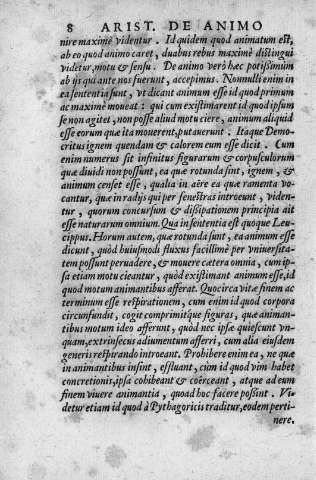 8 ARIST. DE ANIMO
nire maximè videntur. Id quidem quod animatum est,
ab eo quod animo caret, duabus rebus maximè distingui
videtur, motu & sensu. De animo verò hæc potissimùm
ab ijs qui ante nos fuerunt, accepimus. Nonnulli enim in
ea sententia sunt, vt dicant animum esse id quod primum
ac maximè moueat: qui cum existimarent id quod ipsum
se non agitet, non posse aliud motu ciere, animum aliquid
esse eorum quæ ita mouerent, putauerunt. Itaque Demo-
critus ignem quendam & calorem eum esse dicit. Cum
enim numerus sit infinitus figurarum & corpusculorum
quæ diuidi non possunt, ea quæ rotunda sint, ignem, &
animum censet esse, qualia in aëre ea quæ ramenta vo-
cantur, quæ in radijs qui per fenestras introeunt, viden-
tur, quorum concursum & dissipationem principia ait
esse naturarum omnium. Qua in sententia est quoque Leu-
cippus. Horum autem, quæ rotunda sunt, ea animum esse
dicunt, quòd huiusmodi fluxus facillimè per vniuersita-
tem possunt peruadere, & mouere cætera omnia, cum ip-
sa etiam motu cieantur, quòd existimant animum esse, id
quod motum animantibus afferat. Quocirca vitæ finem ac
terminum esse respirationem, cum enim id quod corpora
circunfundit, cogit comprimitque figuras, quæ animan-
tibus motum ideo afferunt, quòd nec ipsæ quiescunt vn-
quam, extrinsecus adiumentum afferri, cum alia eiusdem
generis respirando introeant. Prohibere enim ea, ne quæ
in animantibus insint, effluant, cùm id quod vim habet
concretionis, ipsa cohibeant & coërceant, atque ad eum
finem viuere animantia, quoad hoc facere possint. Vi-
detur etiam id quod à Pythagoricis traditur, eodem perti-
nere.